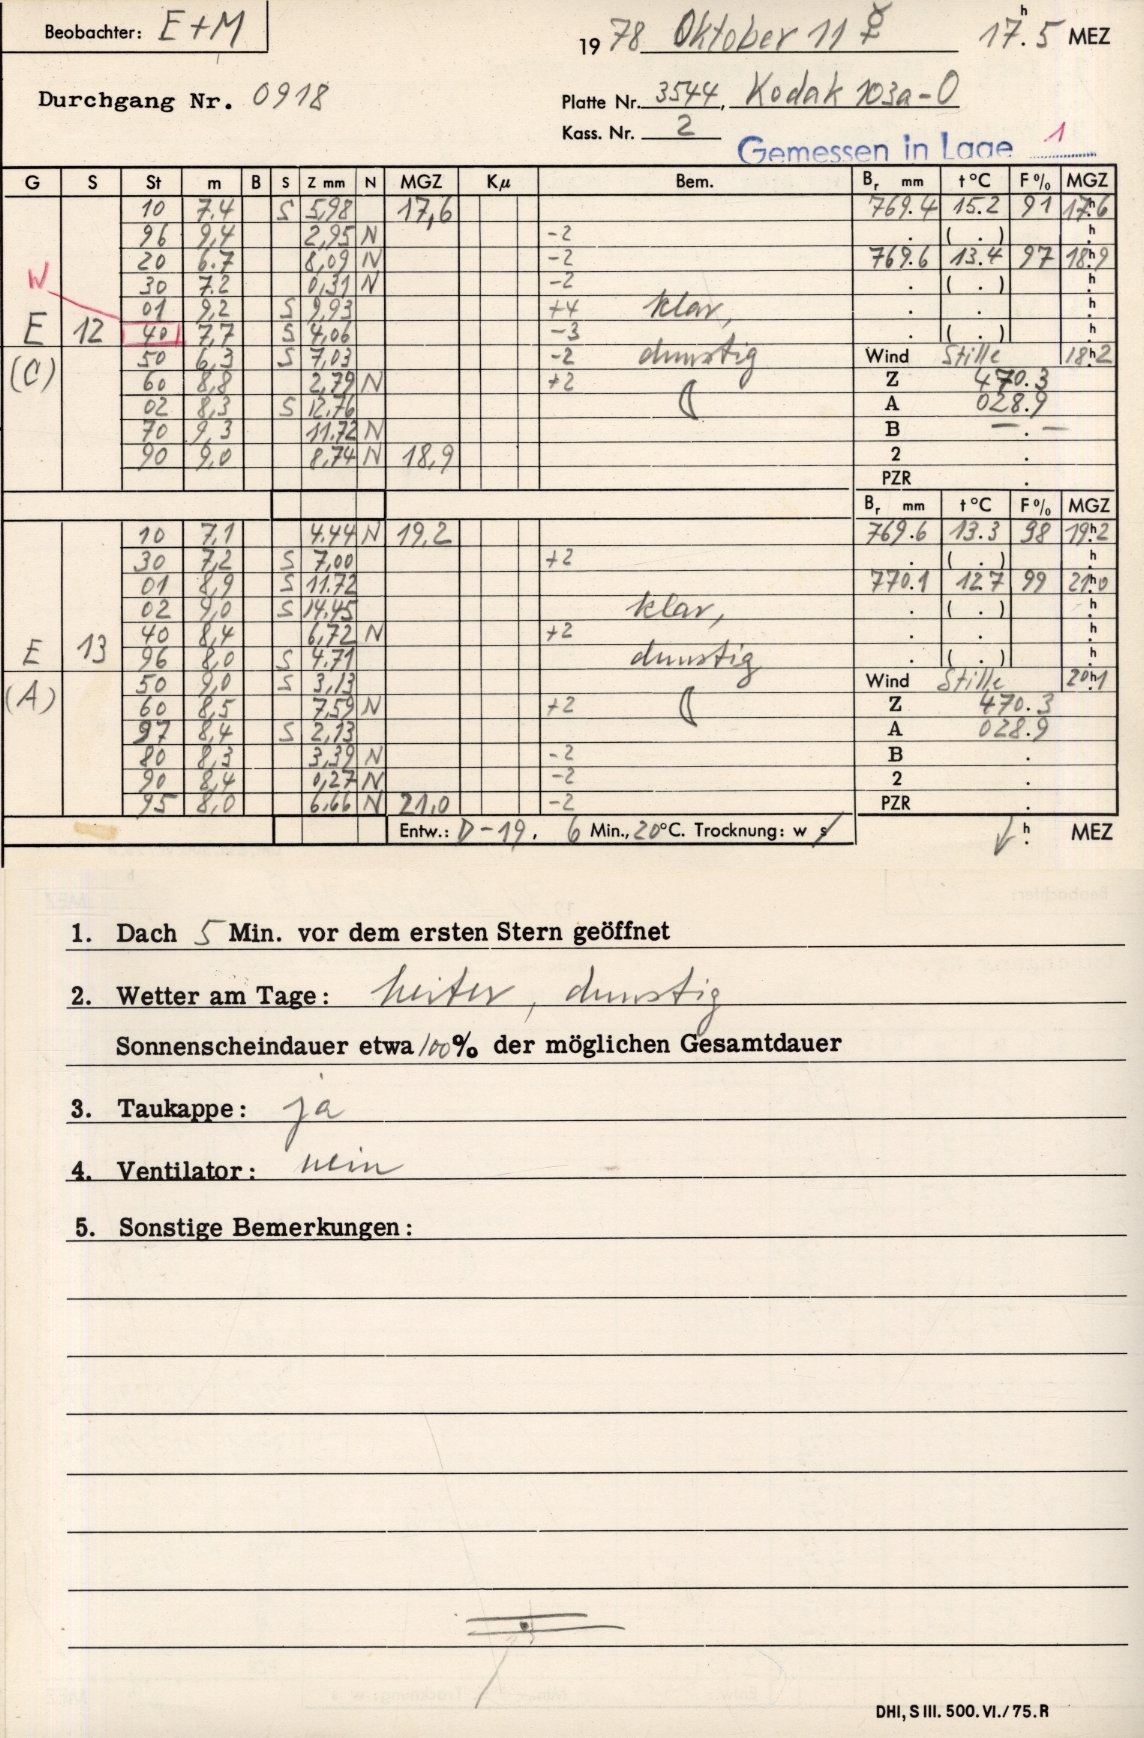 Beobachter: E+M
1978 Oktober 11 ☿ 17h.5 MEZ
Durchgang Nr. 0918
Platte Nr. 3544, Kodak 103a-O
Kass. Nr. 2
Gemessen in Lage 1
G S St m B S Z mm N MGZ Kμ Bem. Br mm t °C F % MGZ
10 7.4 S 5,98 17,6 769.4 15.2 91 17h.6
96 9,4 2,95 N -2 . ( . ) h.
20 6.7 8,09 N -2 769.6 13.4 97 18h.9
W 30 7.2 0,31 N -2 . ( . ) h.
01 9,2 S 9,93 +4 klar, . . h.
E 12 40 7,7 S 4,06 -3 . ( . ) h.
50 6,3 S 7,03 -2 dunstig Wind Stille 18h.2
(C) 60 8,8 2,79 N +2 Z 470.3
02 8,3 S 12,76 ☾ A 028.9
70 9,3 11.72 N B — . —
90 9,0 8,74 N 18,9 2 .
PZR .
Br mm t °C F % MGZ
10 7,1 4.44 N 19,2 769.6 13.3 98 19h.2
30 7,2 S 7,00 +2 . ( . ) h.
01 8,9 S 11.72 770.1 12.7 99 21h.0
02 9,0 S 14.45 klar, . ( . ) h.
40 8,4 6,72 N +2 . . h.
E 13 96 8,0 S 4.71 dunstig . ( . ) h.
50 9,0 S 3,13 Wind Stille 20h.1
(A) 60 8,5 7,59 N +2 ☾ Z 470.3
97 8,4 S 2,13 A 028.9
80 8,3 3,39 N -2 B .
90 8,4 0,27 N -2 2 .
95 8,0 6,66 N 21,0 -2 PZR .
Entw.: D-19, 6 Min., 20°C. Trocknung: w s h. MEZ
1. Dach 5 Min. vor dem ersten Stern geöffnet
2. Wetter am Tage: heiter, dunstig
Sonnenscheindauer etwa 100% der möglichen Gesamtdauer
3. Taukappe: ja
4. Ventilator: nein
5. Sonstige Bemerkungen:
DHI, S III. 500. VI./75. R